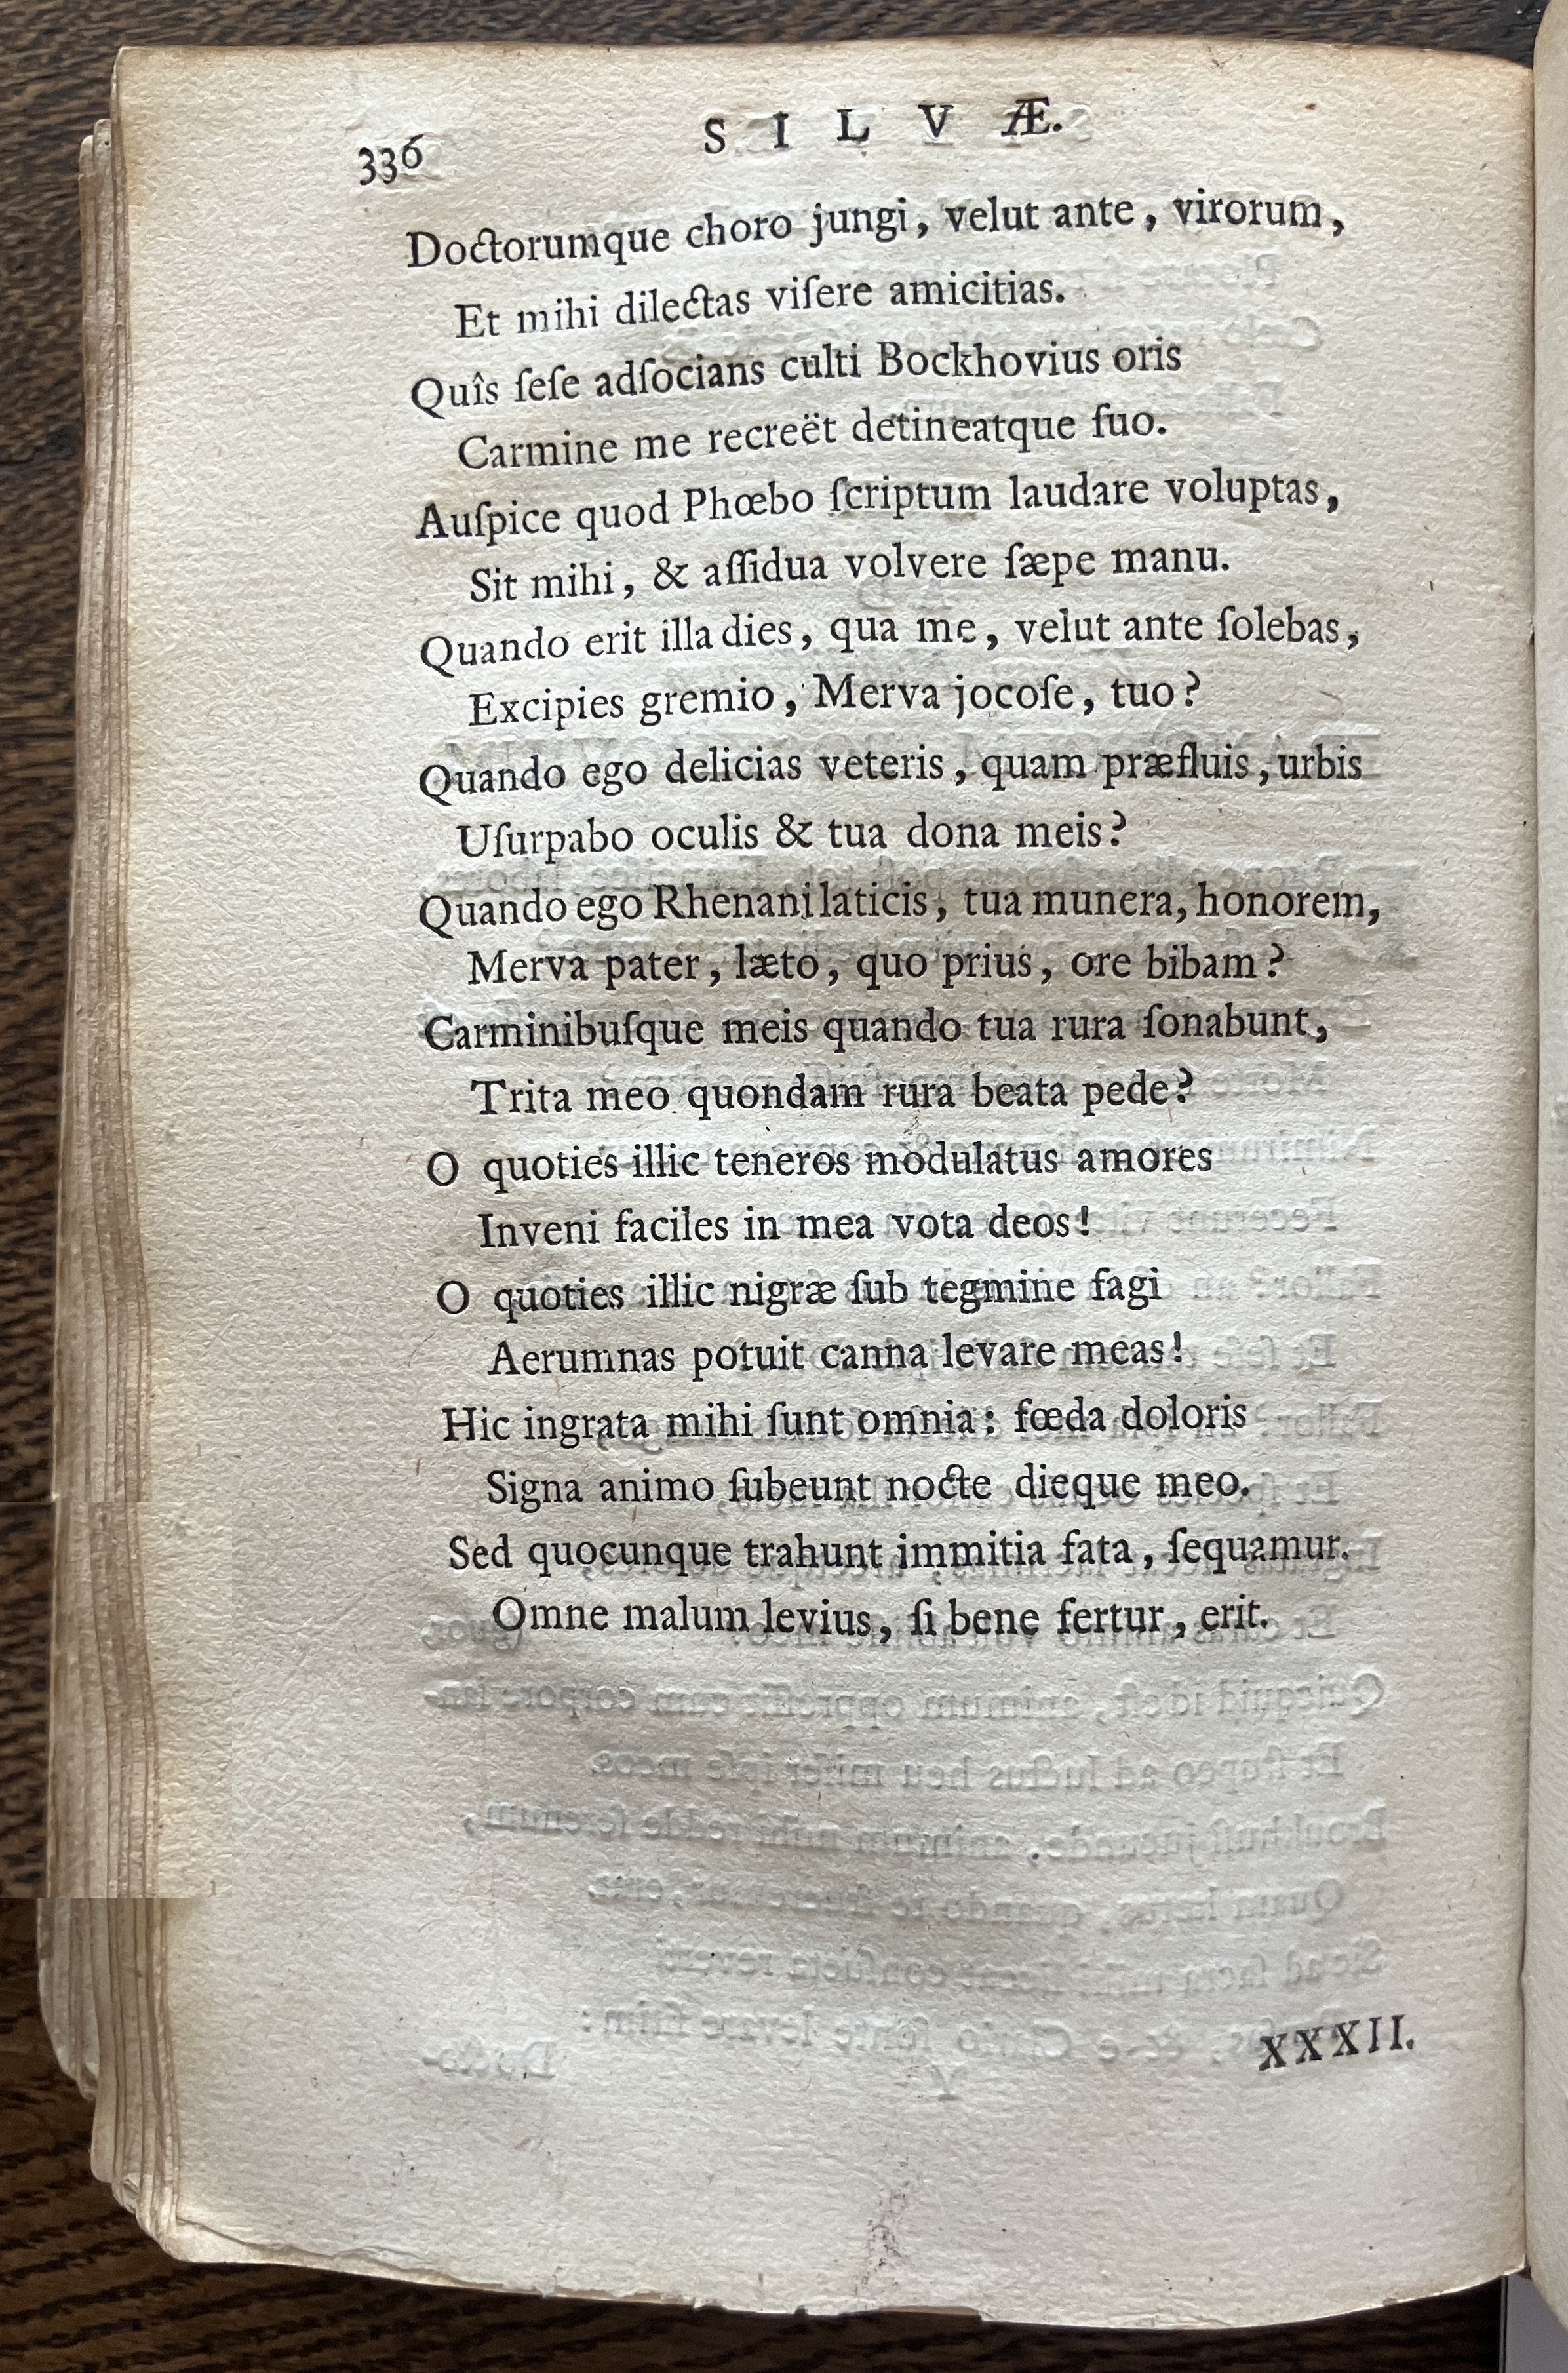 336
SILVÆ.
Doctorumque choro jungi, velut ante, virorum,
Et mihi dilectas viſere amicitias.
Quîs ſeſe adſocians culti Bockhovius oris
Carmine me recreët detineatque ſuo.
Auſpice quod Phœbo ſcriptum laudare voluptas,
Sit mihi, & aſſidua volvere ſæpe manu.
Quando erit illa dies, qua me, velut ante ſolebas,
Excipies gremio, Merva jocoſe, tuo?
Quando ego delicias veteris, quam præfluis, urbis
Uſurpabo oculis & tua dona meis?
Quando ego Rhenani laticis, tua munera, honorem,
Merva pater, læto, quo prius, ore bibam?
Carminibuſque meis quando tua rura ſonabunt,
Trita meo quondam rura beata pede?
O quoties illic teneros modulatus amores
Inveni faciles in mea vota deos!
O quoties illic nigræ ſub tegmine fagi
Aerumnas potuit canna levare meas!
Hic ingrata mihi ſunt omnia: fœda doloris
Signa animo ſubeunt nocte dieque meo.
Sed quocunque trahunt immitia fata, ſequamur.
Omne malum levius, ſi bene fertur, erit.
XXXII.